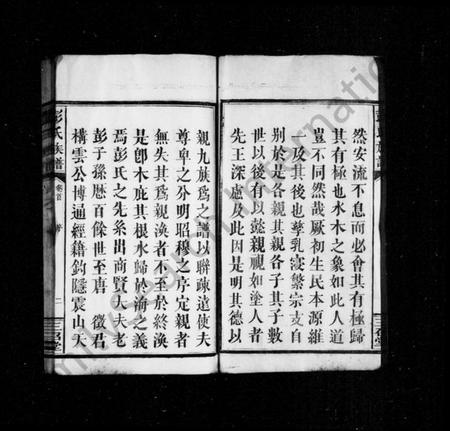 然安流不息而必會其有極歸
其有極也水木之象如此人道
豈不同然哉厥初生民本源維
一及其後也孳乳寖繁宗支自
別於是各親其親各子其子數
世以後有以懿親視如塗人者
先王深慮及此因是明其德以
親九族為之譜以聯疎遠使夫
尊卑之分明昭穆之序定親者
無失其為親渙者不至於終渙
是卽木庇其根水歸於壑之義
焉彭氏之先系出商賢大夫老
彭于孫曆百餘世至唐 徵君
構雲公博通經籍鈎隱震山天
彭氏族譜
卷首
二